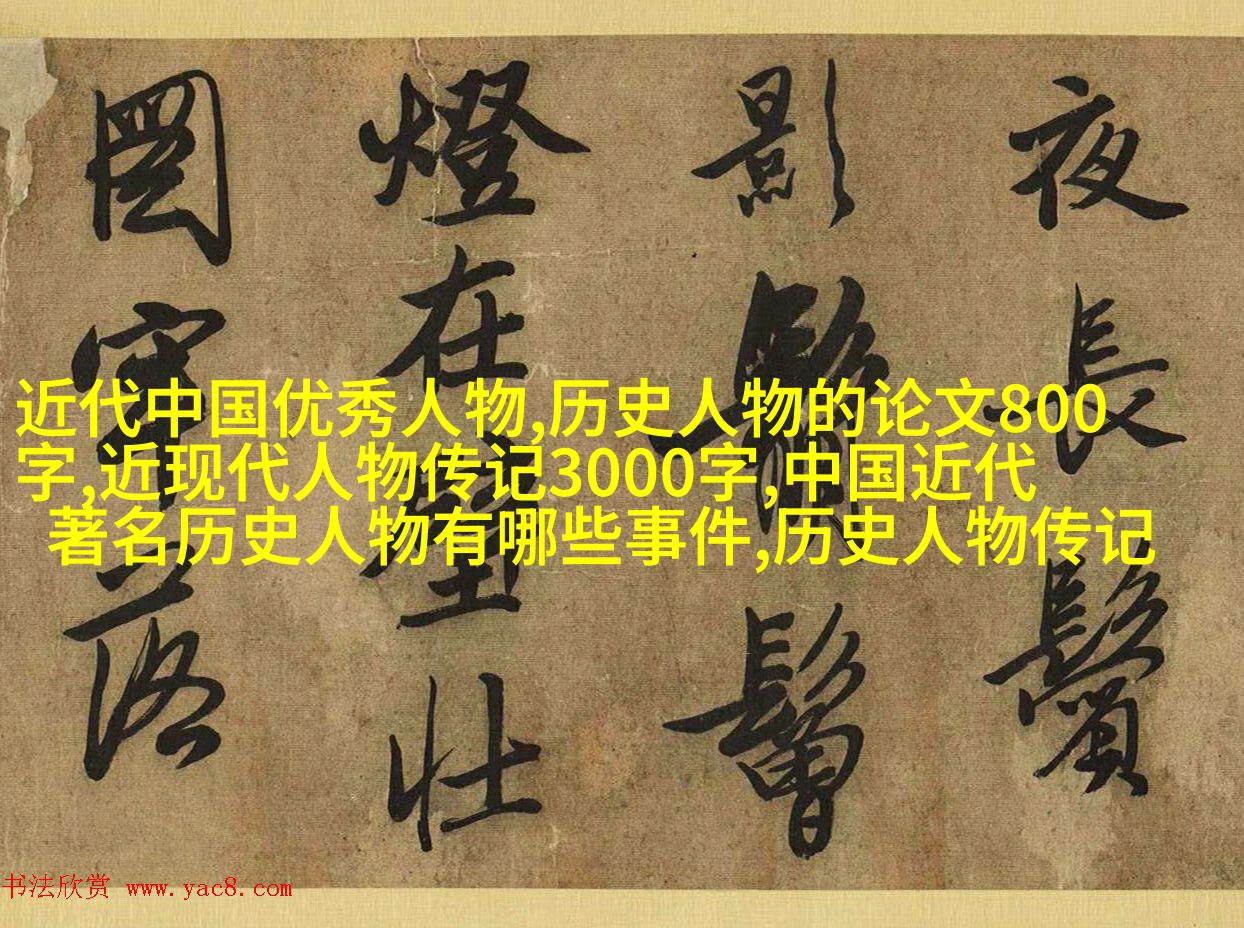 夜長鬢
影鬙
燈在壁壯
圖落
近代中国优秀人物,历史人物的论文800
字,近现代人物传记3000字,中国近代
著名历史人物有哪些事件,历史人物传记
书法欣赏 www.yac8.com